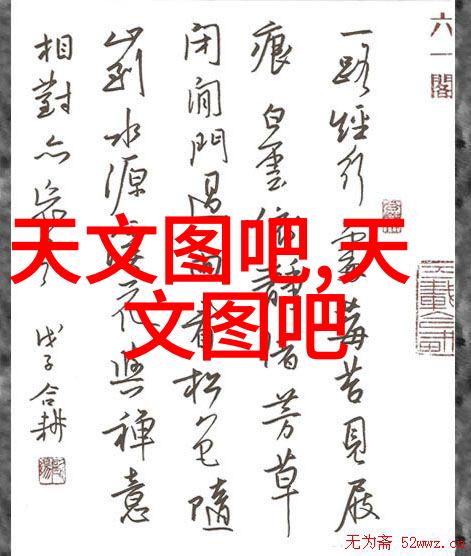 六一閣
一路經行處莓苔見屐
痕白雲依靜渚芳草
閉閒門過雨看松色隨
山到水源溪花與禪意
相對亦忘言
戊子合耕
天文图吧,天
文图吧
无为斋 52wwz.c